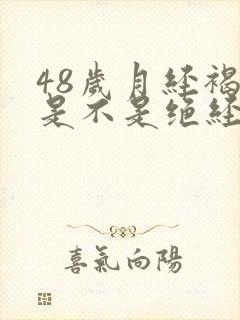 48歲月经褐
是不是绝经
喜氣向陽